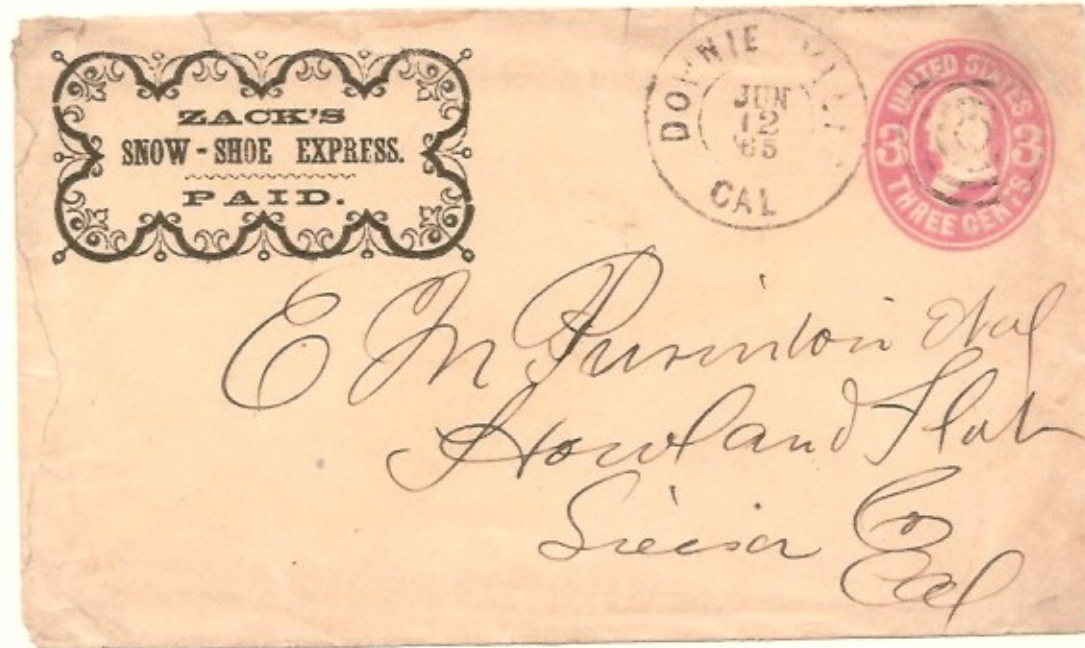 ZACK'S
SNOW-SHOE EXPRESS.
PAID.
DOWNIEVILLE
JUN
12
65
CAL
UNITED STATES
3 3
THREE CENTS
E M Purinton
Howland Flat
Sierra Co
Cal